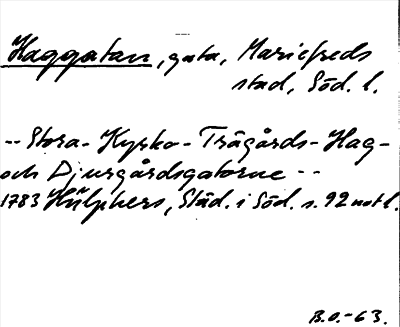 Haggatan, gata, Mariefreds
stad, Söd. l.
-- Stora- Kyrko- Trägårds- Hag-
och Djurgårdsgatorne --
1783 Hülphers, Städ. i Söd. s. 92 not 1.
B.O.-63.